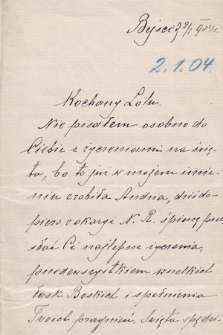 2.1.04
Kochany Lolu.
Nie pisałem osobno do
Ciebie z życzeniami na świę-
ta, bo to już w mojem imie-
niu zrobiła Andzia, dziś do-
piero z okazyi N. R. śpieszę prze-
słać Ci najlepsze życzenia,
przedewszystkiem wszelkich
łask Boskich i spełnienia
Twoich pragnień. Święta spędzi-